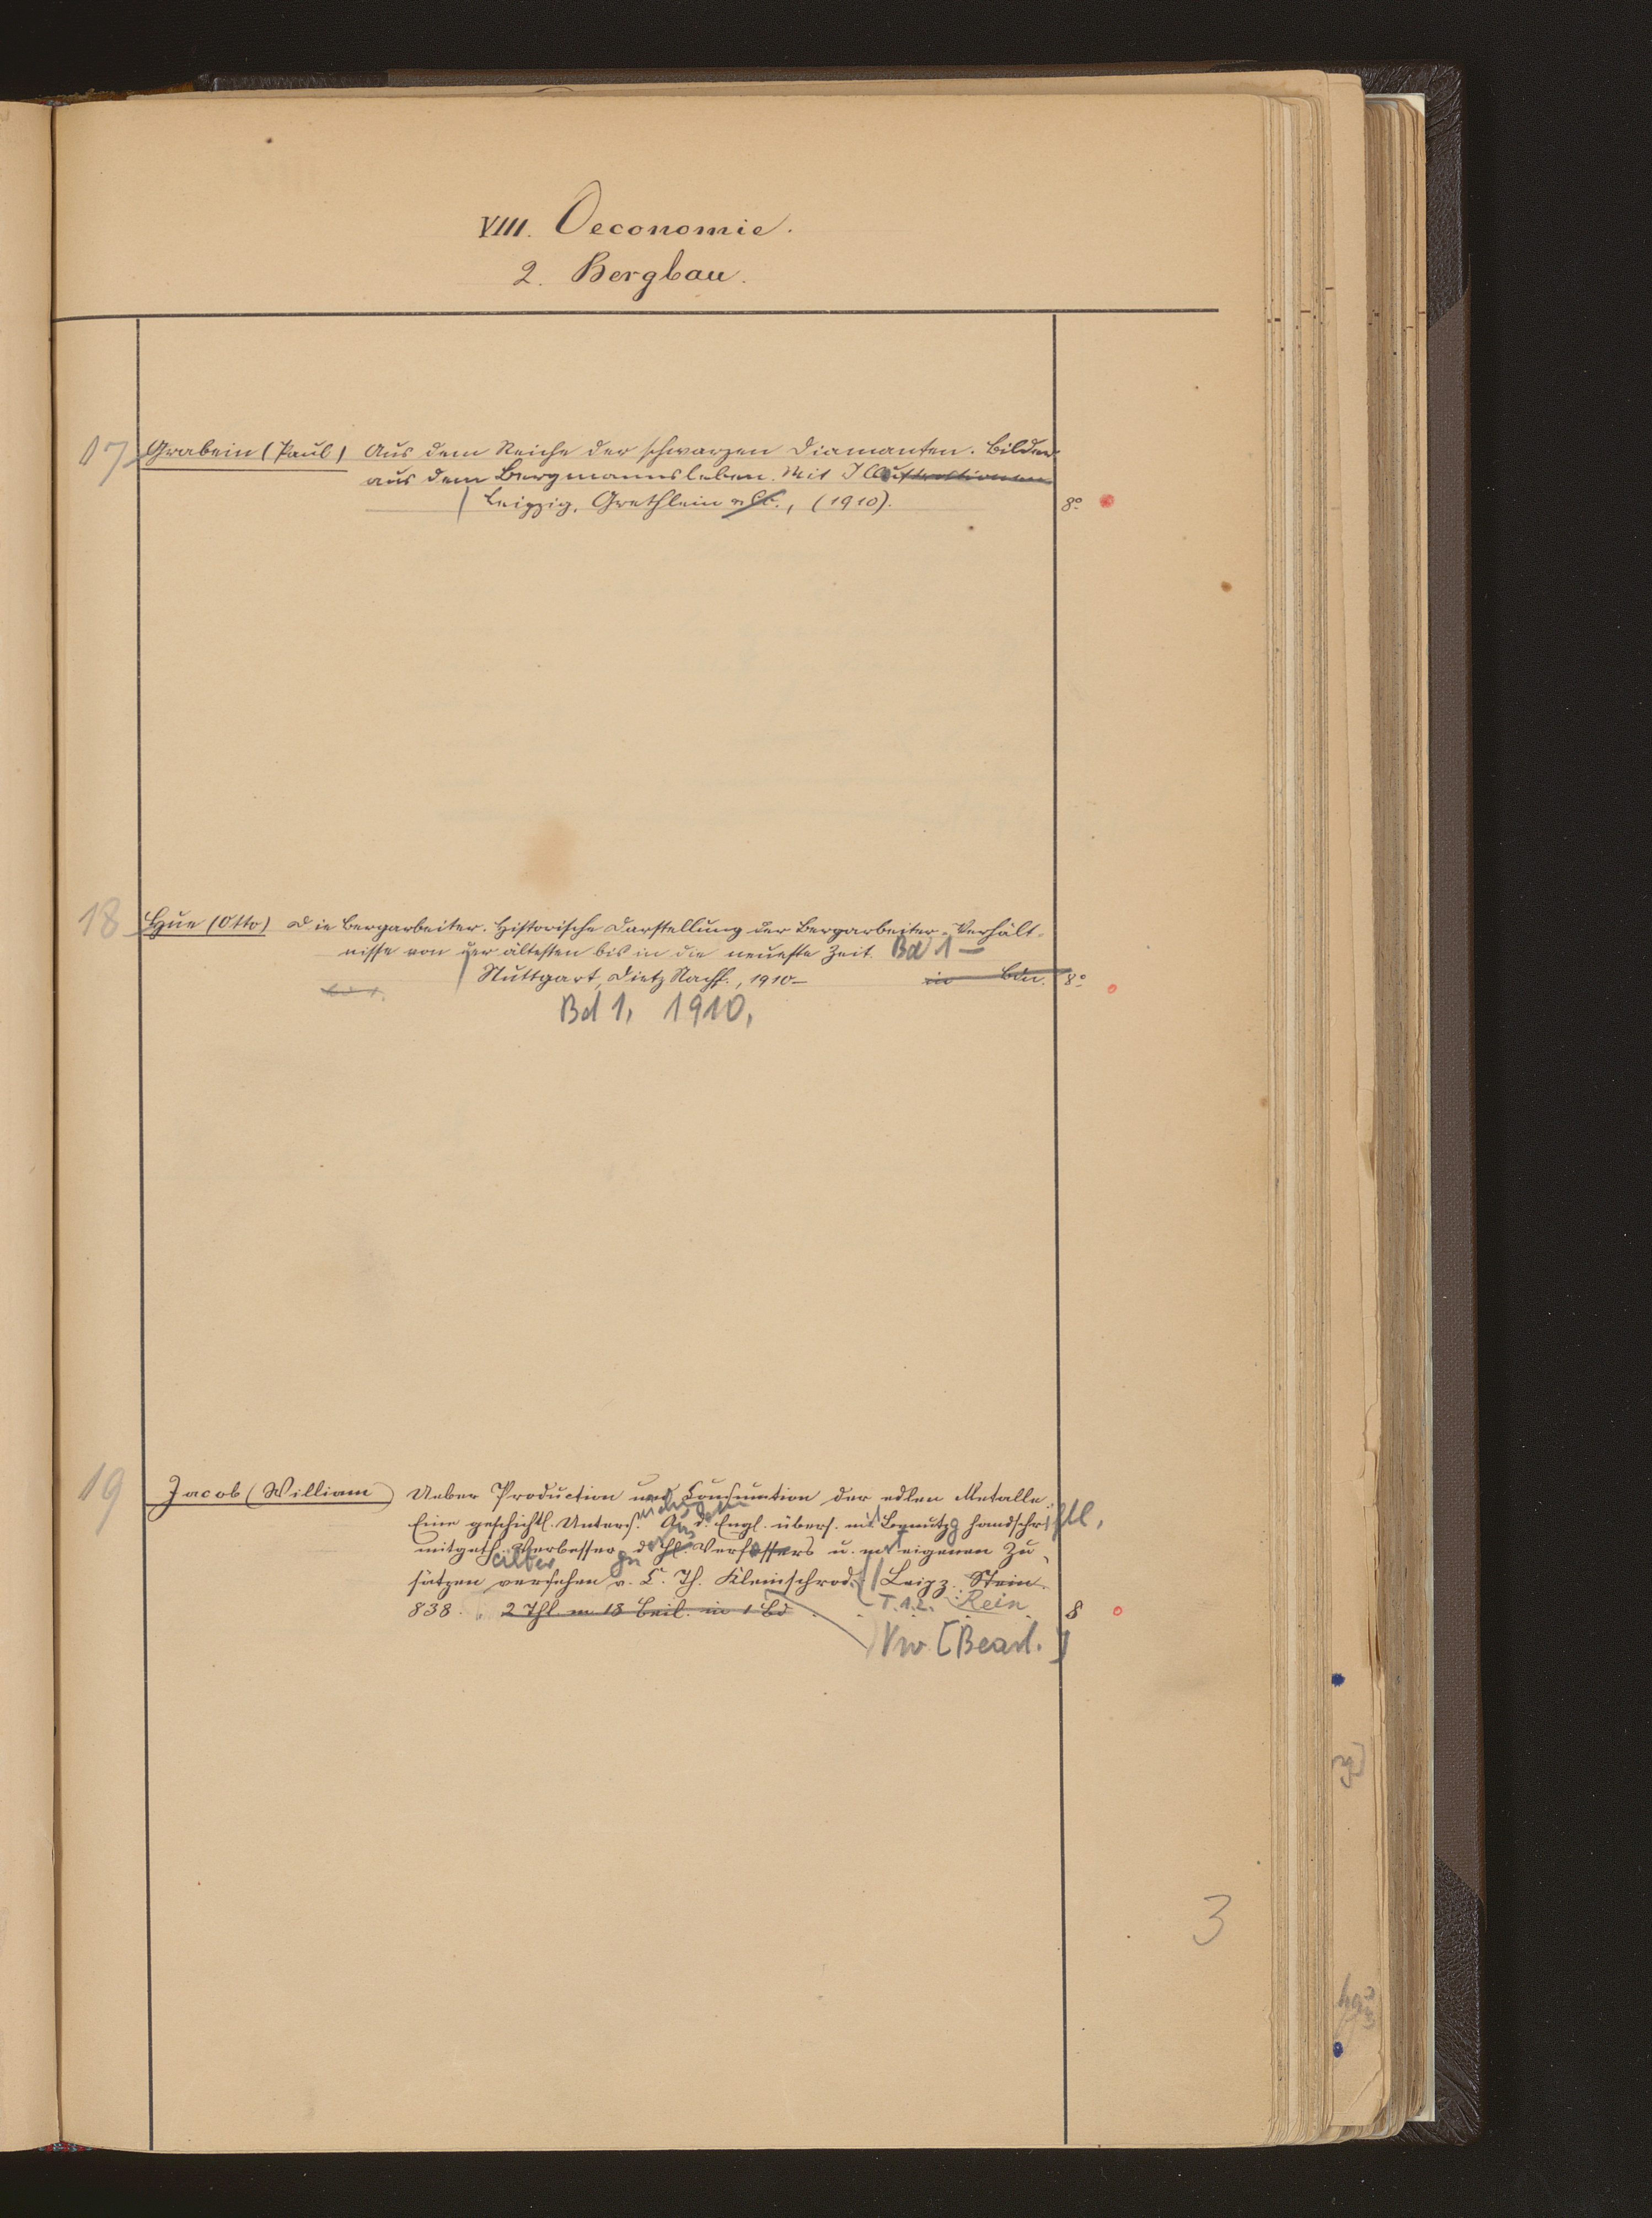 VIII. Oeconomie.
2. Bergbau.
17 Grabein (Paul) Aus dem Reiche der schwarzen Diamanten. Bilder
aus dem Bergmannsleben. Mit Illustrationen
Leipzig, Grethlein & Co., (1910). 8°
18 Hue (Otto) Die Bergarbeiter. Historische Darstellung der Bergarbeiter-Verhält-
nisse von der ältesten bis in die neueste Zeit. Bd 1 —
Stuttgart, Dietz Nachf., 1910— in Bdn. 8°
Bd 1.
Bd 1, 1910,
19 Jacob (William) Ueber Production und Consumtion der edlen Metalle.
Eine geschichtl. Unters. Aus d. Engl. übers. mit Benutzg handschriftl,
mitgeth. Verbesser. d. Verfassers u. mit eigenen Zu-
sätzen versehen v. C. Th. Kleinschrod. Leipz. Stein
838. 2 Thl. m 18 Beil. in 1 Bd T. 1.2. Rein 8
Vw. [Bearb.]
3